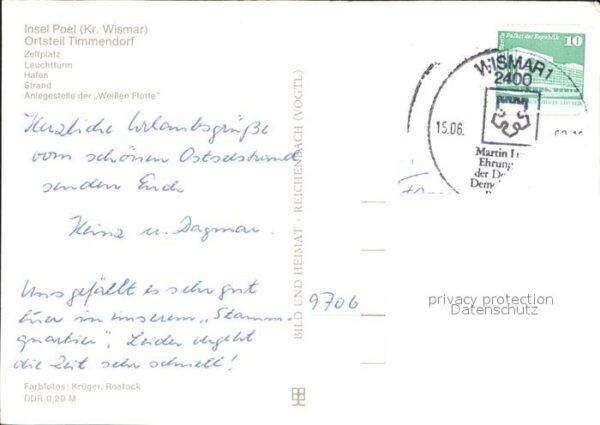 Insel Poel (Kr. Wismar)
Ortsteil Timmendorf
Zeltplatz
Leuchtturm
Hafen
Strand
Anlegestelle der „Weißen Flotte"
Herzliche Urlaubsgrüße
vom schönen Ostseestrand
senden Euch
Heinz u. Dagmar.
Uns gefällt es sehr gut
hier in unserem „Stamm-
quartier". Leider vergeht
die Zeit sehr schnell!
Farbfotos: Krüger, Rostock
DDR 0,20 M
BILD UND HEIMAT · REICHENBACH (VOGTL)
Palast der Republik
10
WISMAR 1
2400
15.06.
Martin
Ehrung
der
9706
privacy protection
Datenschutz